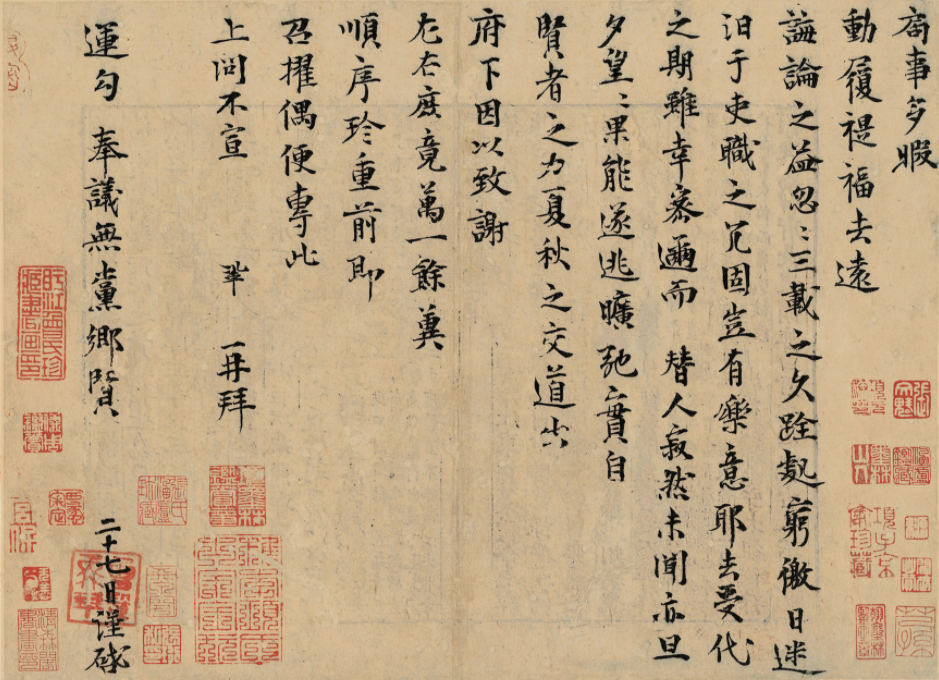 局事多暇
動履禔福去遠
誨論之益忽〻三載之久跧處窮徼日迷
汩于吏職之冗固豈有樂意耶去受代
之期雖幸密邇而 替人寂然未聞亦旦
夕望〻果能遂逃曠弛實自
賢者之力夏秋之交道出
府下因以致謝
左右庶竟萬一餘冀
順序珍重前即
召擢偶便專此
上問不宣 鞏 再拜
運勾 奉議無黨鄉賢
二十七日謹啟
項子京家珍藏
盱江曾氏珍藏書畫印